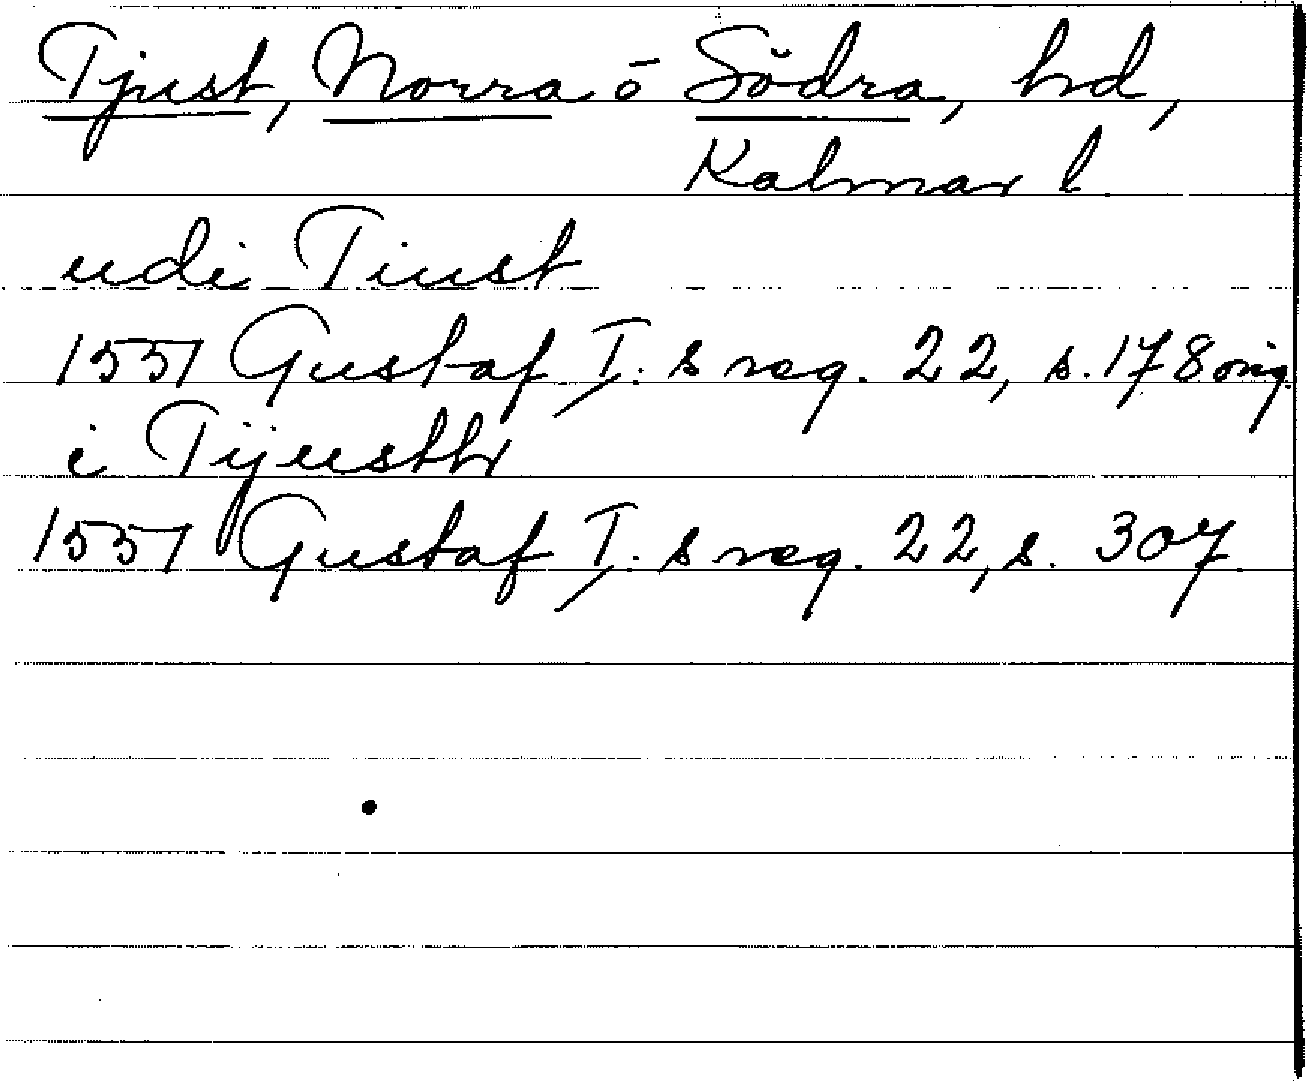 Tjust, Norra o Södra, hd,
Kalmar l
udi Tiust
1551 Gustaf I:s reg. 22, s. 178 orig.
i Tijusth
1551 Gustaf I:s reg. 22, s. 307